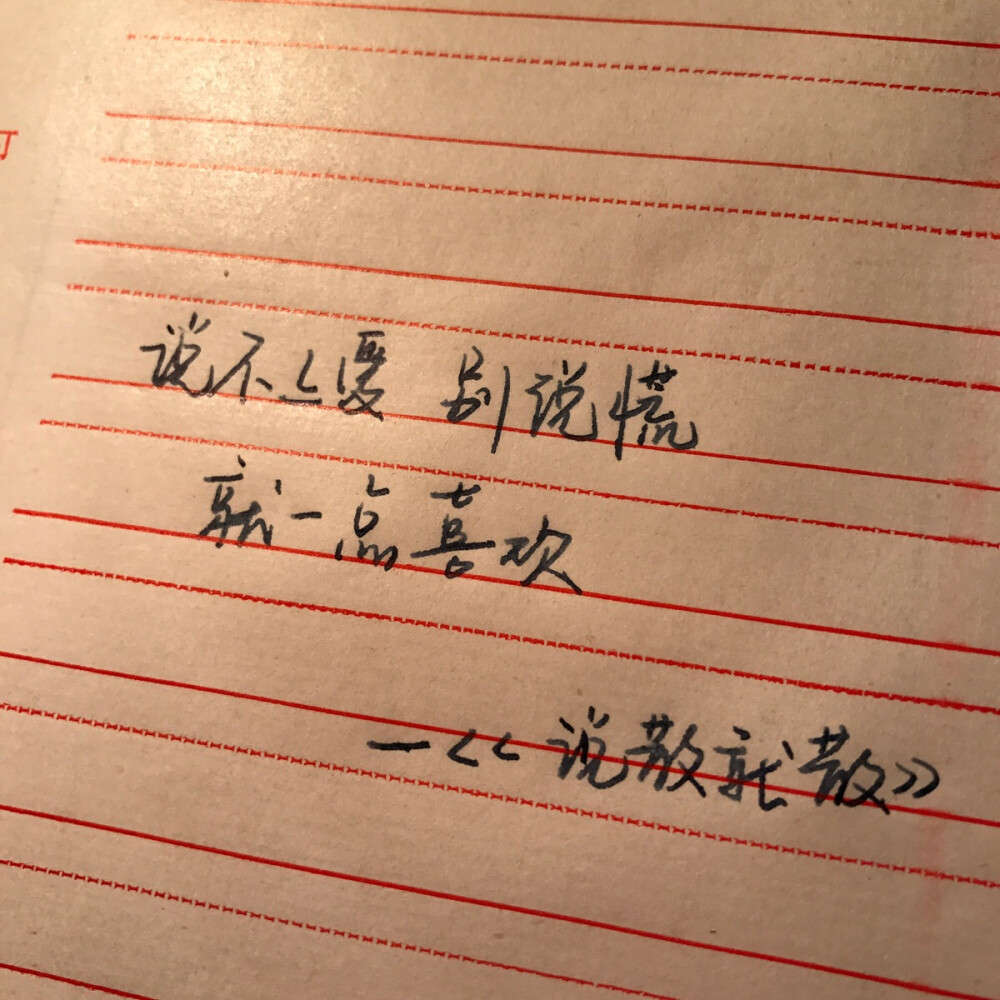 说不上爱 别说慌
就一点喜欢
—<<说散就散>>